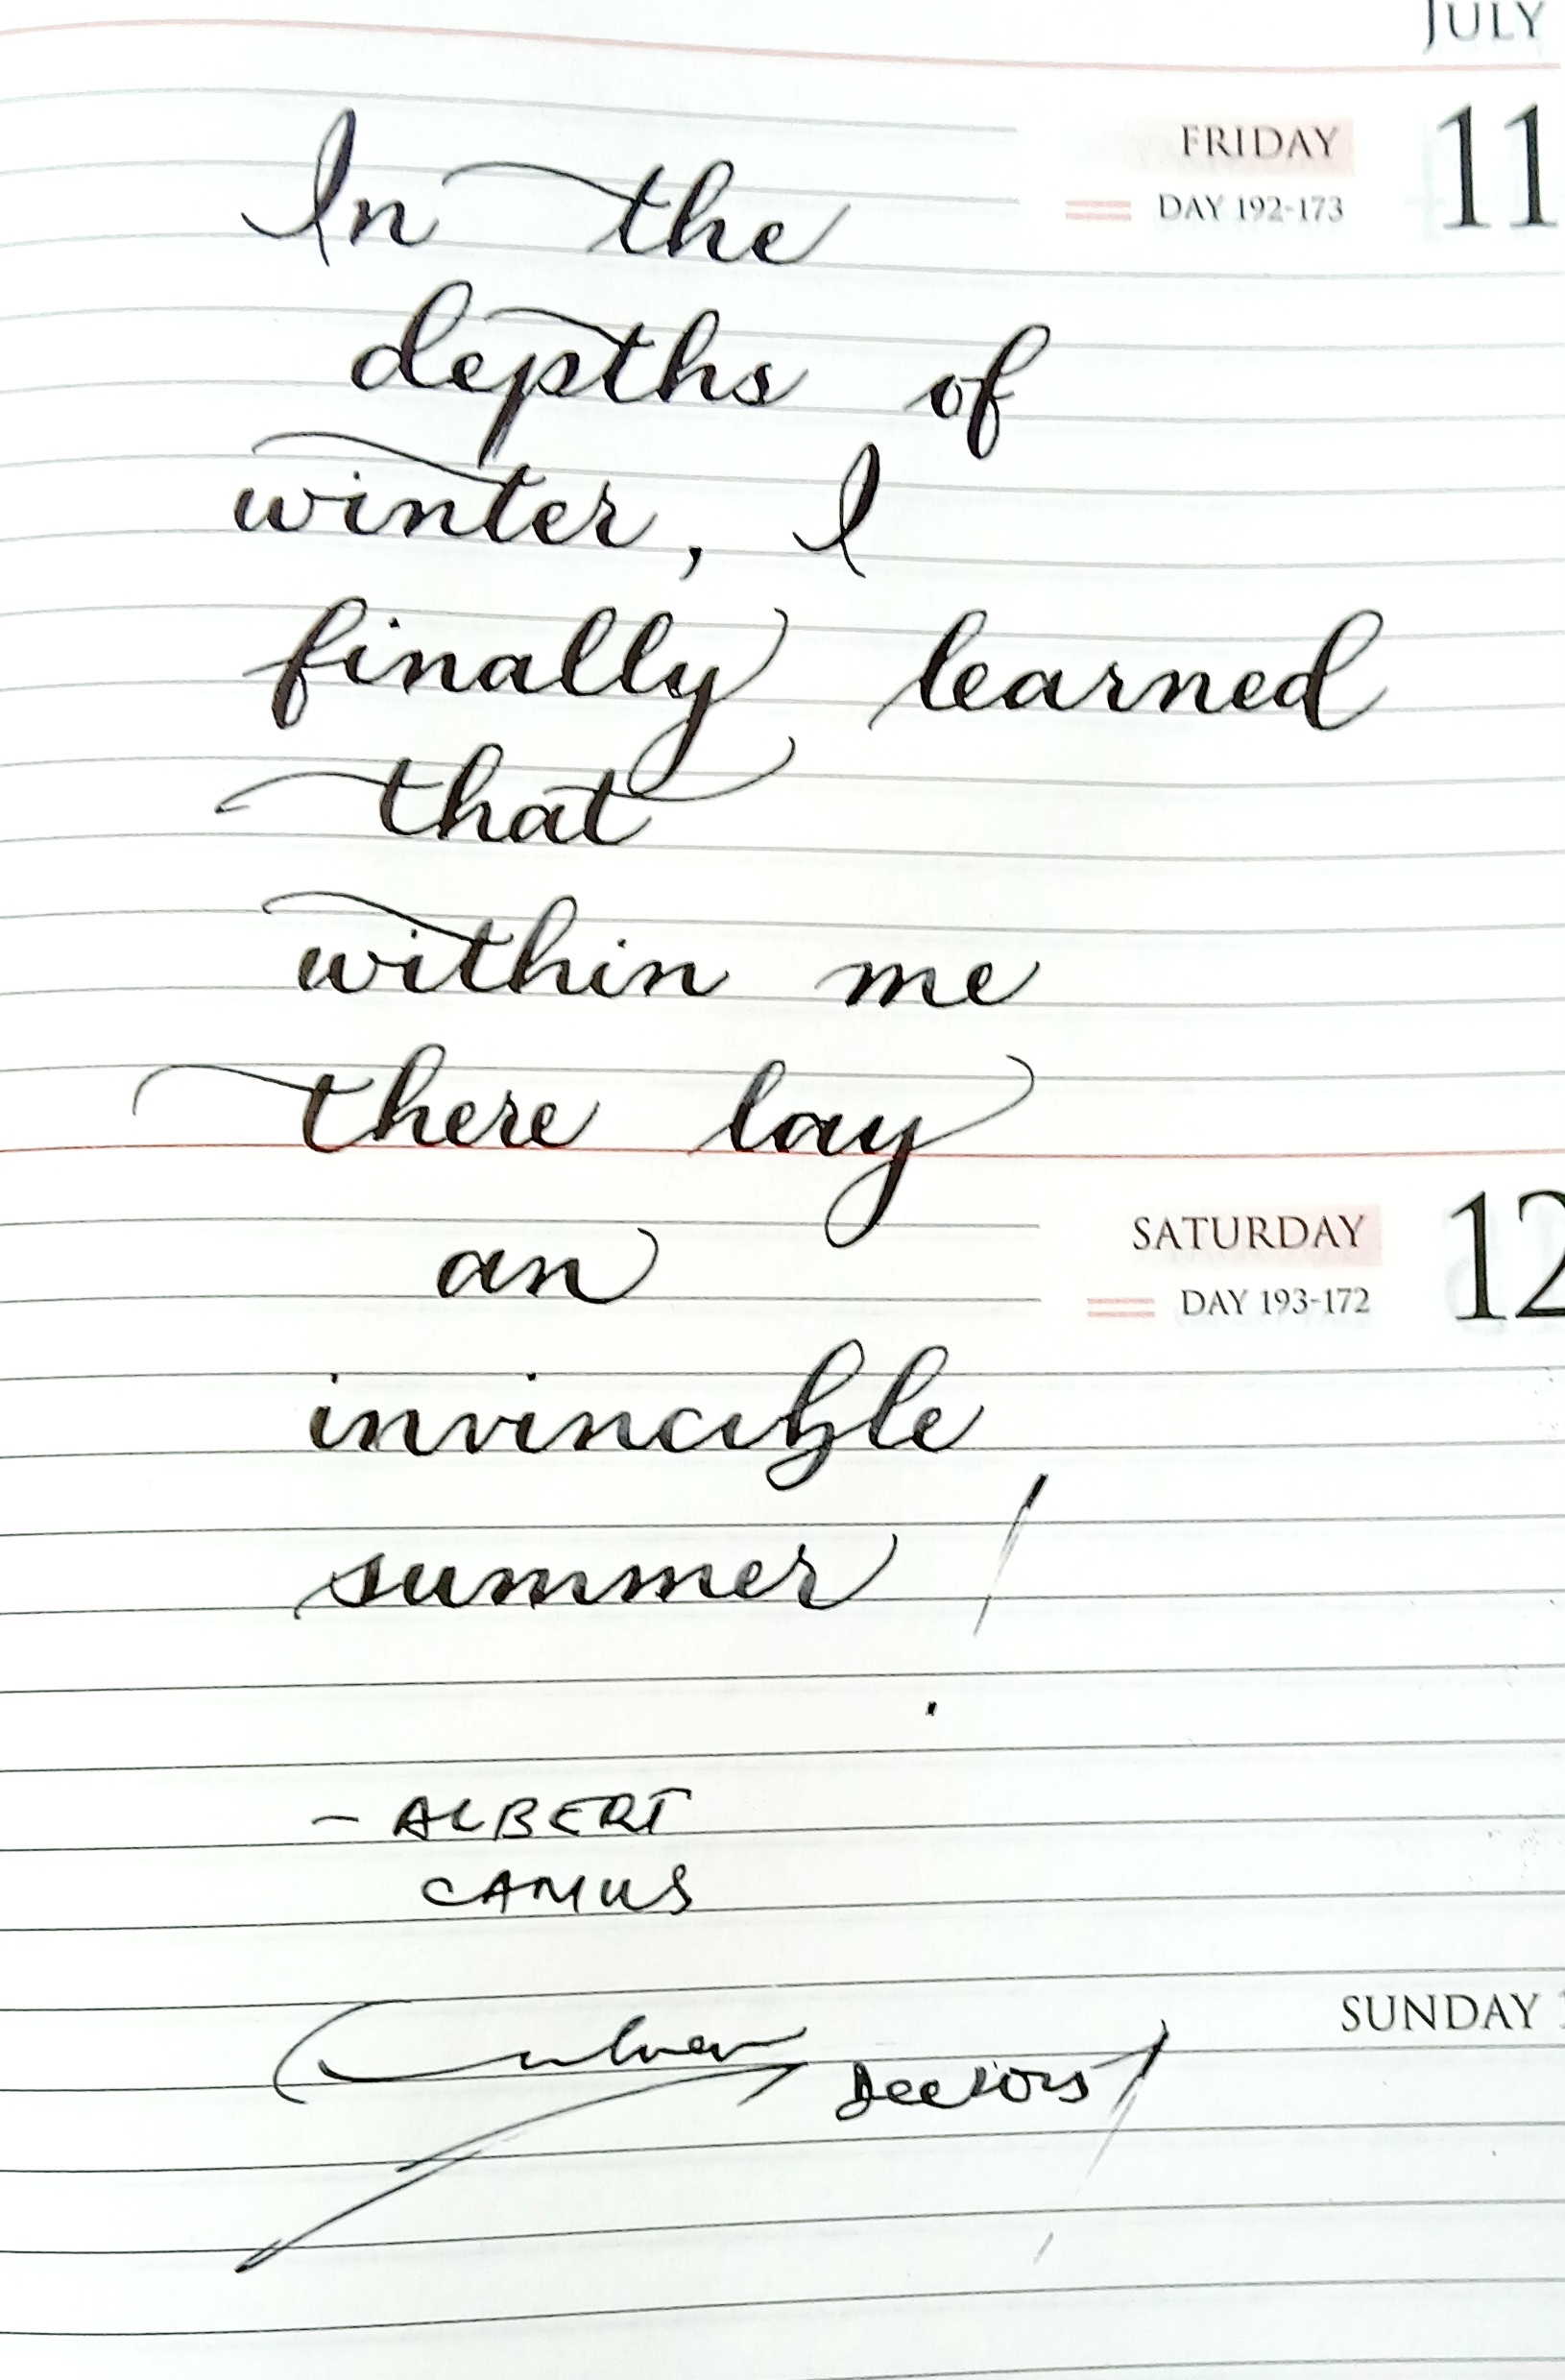 JULY
In the
FRIDAY 11
DAY 192-173
depths of
winter, I
finally learned
that
within me
there lay
an
SATURDAY 12
DAY 193-172
invincible
summer!
- ALBERT
CAMUS
SUNDAY